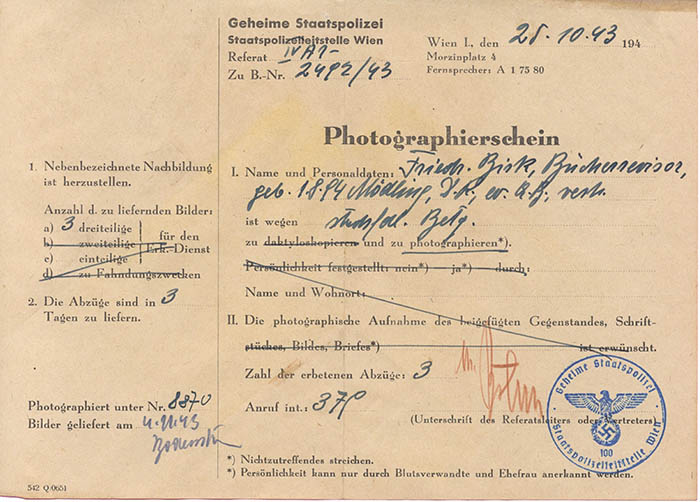 Geheime Staatspolizei
Staatspolizeileitstelle Wien
Referat IV A1-
Zu B.-Nr. 2492/43
Wien I., den 28.10.43 194
Morzinplatz 4
Fernsprecher: A 1 75 80
Photographierschein
1. Nebenbezeichnete Nachbildung
ist herzustellen.
Anzahl d. zu liefernden Bilder:
a) 3 dreiteilige
b) zweiteilige
c) einteilige
für den
Erk.-Dienst
d) zu Fahndungszwecken
2. Die Abzüge sind in 3
Tagen zu liefern.
Photographiert unter Nr. 8870
Bilder geliefert am 4.11.43
I. Name und Personaldaten: Friedr. Bisk, Bücherrevisor,
geb. 1894 Mödling, D.R., ev. A.B., verh.
ist wegen Betg.
zu daktyloskopieren und zu photographieren*).
Persönlichkeit festgestellt: nein*) ja*) durch:
Name und Wohnort:
II. Die photographische Aufnahme des beigefügten Gegenstandes, Schrift-
stückes, Bildes, Briefes*) ist erwünscht.
Zahl der erbetenen Abzüge: 3
Anruf int.: 379
(Unterschrift des Referatsleiters oder Vertreters)
Geheime Staatspolizei
Staatspolizeileitstelle Wien
100
*) Nichtzutreffendes streichen.
*) Persönlichkeit kann nur durch Blutsverwandte und Ehefrau anerkannt werden.
542 Q.0651